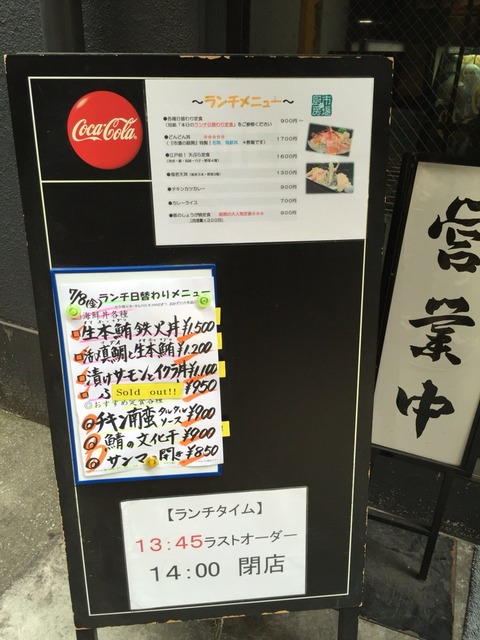 Coca-Cola
～ランチメニュー～
市場厨房
●各種日替わり定食 900円～
(別紙「本日のランチ日替わり定食」をご参照ください
●どんどん丼 ※※※※※ 1700円
●江戸前！天ぷら定食 1600円
●海老天丼 1300円
●チキンカツカレー 900円
●カレーライス 700円
●豚のしょうが焼定食 900円
7/8(金)ランチ日替わりメニュー
海鮮丼各種
生本鮪鉄火丼 ¥1.500
真鯛と生本鮪 ¥1.200
漬けサーモンとイクラ丼 ¥1.100
Sold out!! ¥950
◎おすすめ定食各種
チキン南蛮タルタルソース ¥900
鯖の文化干 ¥900
サンマの開き ¥850
【ランチタイム】
13:45ラストオーダー
14:00 閉店
営業中